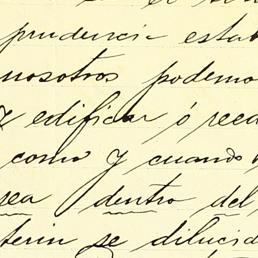 prudencia esta
nosotros podemo
y edificar ó reed
como y cuando
sea dentro del
terin se dilucid